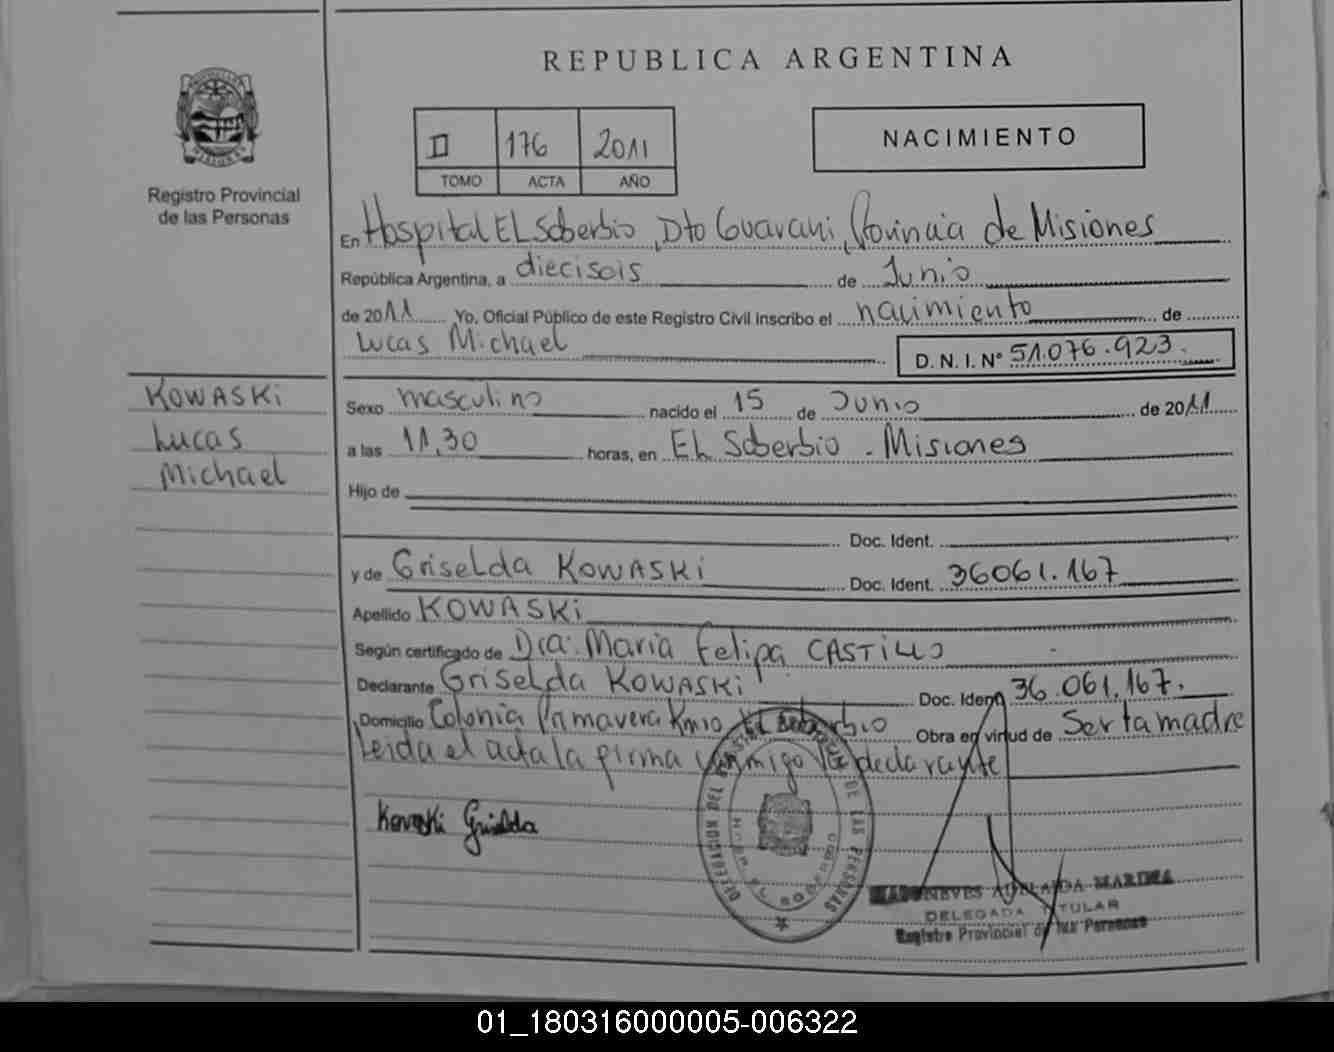 REPUBLICA ARGENTINA
II 176 2011
TOMO ACTA AÑO
NACIMIENTO
Registro Provincial
de las Personas
En Hospital EL Soberbio, Dto Guarani, Provincia de Misiones
República Argentina, a dieciseis de Junio
de 2011 Yo, Oficial Público de este Registro Civil inscribo el nacimiento de
Lucas Michael D. N. I. Nº 51.076.923.
KOWASKi
Lucas
Michael
Sexo masculino nacido el 15 de Junio de 2011
a las 11,30 horas, en EL Soberbio - Misiones
Hijo de
Doc. Ident.
y de Griselda KOWASKi Doc. Ident. 36061.167
Apellido KOWASKi
Según certificado de Dra. Maria Felipa CASTILLO
Declarante Griselda KOWASKi Doc. Ident. 36.061.167.
Domicilio Colonia Primavera Km10 EL Soberbio Obra en virtud de Ser la madre
Leida el acta la firma conmigo la declarante
Kowaski Griselda
DELEGACION DEL REGISTRO PROVINCIAL DE LAS PERSONAS
HOSP. EL SOBERBIO
NEVES ADELAIDA MARINA
DELEGADA TITULAR
Registro Provincial de las Personas
01_180316000005-006322